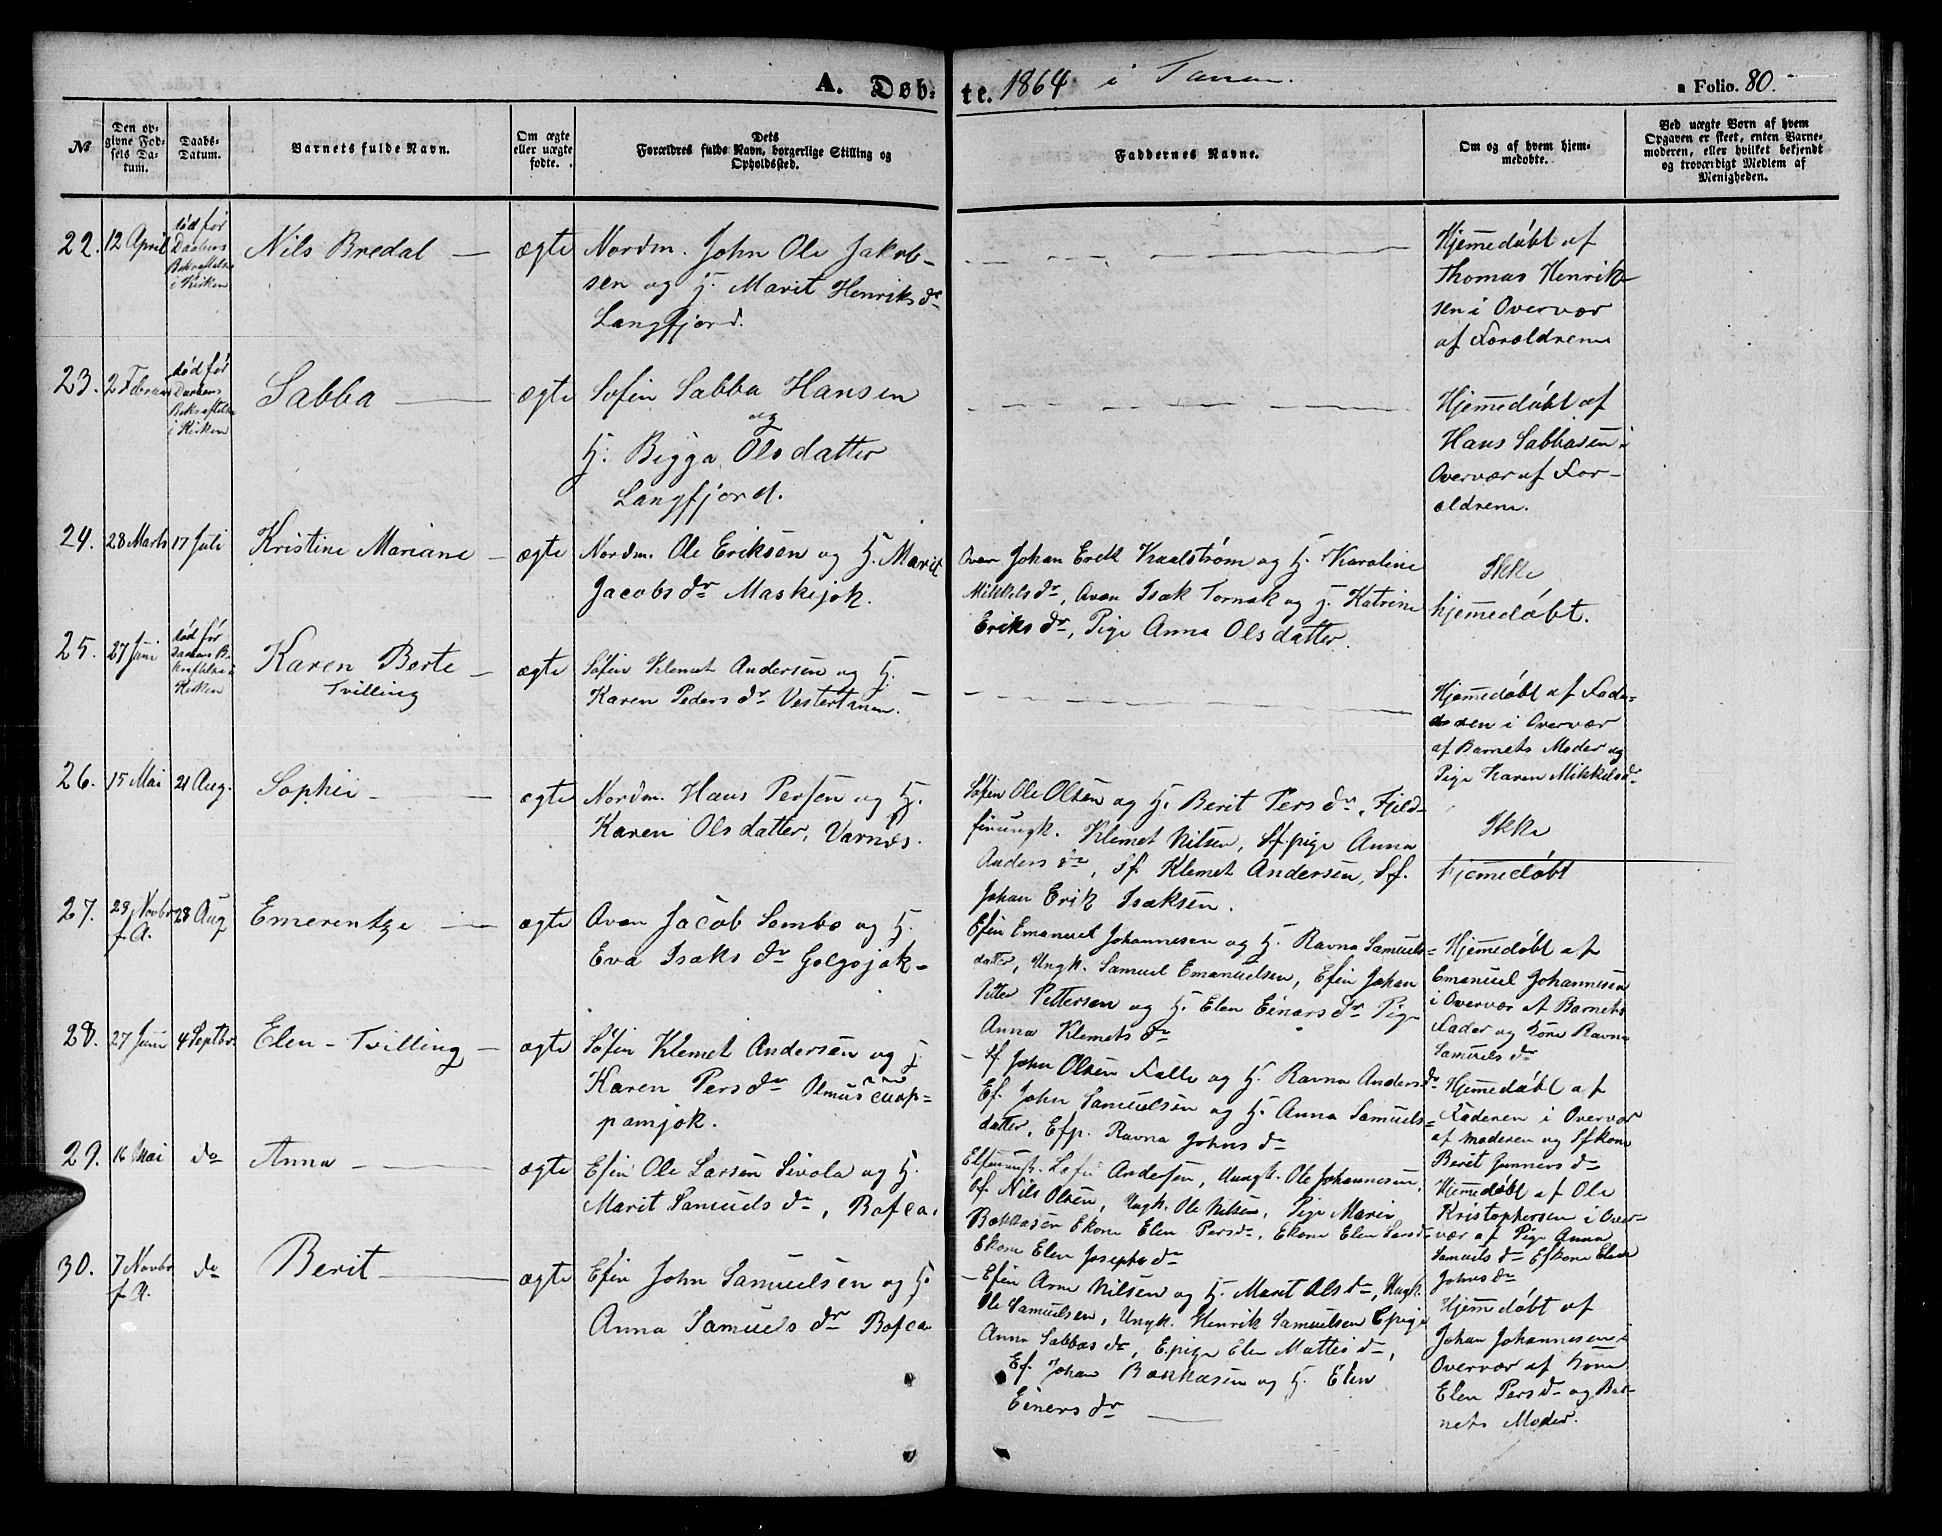 A. Døb-
te. 1864 i Tanen.
a Folio. 80.
№
Den op-
givne Fød-
sels Da-
tum.
Daabs-
Datum.
Barnets fulde Navn.
Om ægte
eller uægte
fødte.
Dets
Forældres fulde Navn, borgerlige Stilling og
Opholdssted.
Faddernes Navne.
Om og af hvem hjem-
medøbte.
Ved uægte Børn af hvem
Opgaven er skeet, enten Barne-
moderen, eller hvilket bekjendt
og troværdigt Medlem af
Menigheden.
22. 12 April
død før
Daabens
Bekræftelse
i Kirken
Nils Bredal
ægte
Nordm. John Ole Jakob-
sen og H. Marit Henriksdr
Langfjord.
Hjemmedøbt af
Thomas Henrik-
sen i Overvær
af Forældrene
23. 2 Februar
død før
Daabens
Bekræftelse
i Kirken
Sabba
ægte
Søfin Sabba Hansen
og
H. Bigga Olsdatter
Langfjord.
Hjemmedøbt af
Hans Sabbasen i
Overvær af For-
ældrene.
24. 28 Marts 17 Juli
Kristine Mariane
ægte
Nordm. Ole Eriksen og H. Marit
Jacobsdr Maskejok.
Qvæn Johan Erik Kaalstrøm og H. Karoline
Mikkelsdr, Qvæn Isak Tornak og H. Katrine
Eriksdr, Pige Anna Olsdatter.
Ikke
hjemmedøbt.
25. 27 Juni
død før
Daabens Be-
kræftelse i
Kirken
Karen Berte
Tvilling
ægte
Søfin Klemet Andersen og H.
Karen Pedersdr Vestertanen.
Hjemmedøbt af Fade-
ren i Overvær
af Barnets Moder og
Pige Karen Mikkelsdr
26. 15 Mai 21 Aug.
Sophie
ægte
Nordm. Hans Persen og H.
Karen Olsdatter, Varnæs.
Søfin Ole Olsen og H. Berit Persdr, Fjeld-
finungk. Klemet Nilsen, Sfpige Anna
Andersdr, Sf. Klemet Andersen, Sf.
Johan Erik Isaksen.
Ikke
hjemmedøbt
27. 29 Novbr
f. A.
28 Aug
Emerentze
ægte
Qvæn Jacob Sombo og H.
Eva Isaksdr Golgojok
Efin Emanuel Johannesen og H. Ravna Samuels-
datter, Ungk. Samuel Emanuelsen, Efin Johan
Petter Pettersen og H. Elen Einarsdr Pige
Anna Klemetsdr
Hjemmedøbt af
Emanuel Johannesen
i Overvær af Barnets
Fader og Kone Ravna
Samuelsdr
28. 27 Juni 4 Septbr.
Elen - Tvilling
ægte
Søfin Klemet Andersen og H.
Karen Persdr Olmuscuop-
pamjok.
Sf. John Olsen Falle og H. Ravna Andersdr
Ef. John Samuelsen og H. Anna Samuels-
datter, Efp. Ravna Johnsdr
Hjemmedøbt af
Faderen i Overvær
af Moderen og Sfkone
Berit Gunnersdr
29. 16 Mai do
Anna
ægte
Efin Ole Larsen Sivola og H.
Marit Samuelsdr, Bofca.
Elfinungk. Andersen, Ungk. Ole Johannesen,
Sf. Nils Olsen, Ungk. Ole Nilsen, Pige Marie
Bakkasen Ekone Elen Persdr, Ekone Elen Larsdr
Ekone Elen Josephsdr
Hjemmedøbt af Ole
Kristophersen i Over-
vær af Pige Anna
Samuelsdr Efkone Elen
Johnsdr
30. 7 Novbr
f. A.
do
Berit
ægte
Efin John Samuelsen og H.
Anna Samuelsdr Bofca
Efin Arne Nilsen og H. Marit Olsdr, Ungk.
Ole Samuelsen, Ungk. Henrik Samuelsen Epige
Anna Sabbasdr, Epige Elen Mattisdr,
Ef. Johan Bakkasen og H. Elen
Einersdr
Hjemmedøbt af
Johan Johannesen i
Overvær af Kone
Elen Persdr og Bar-
nets Moder.